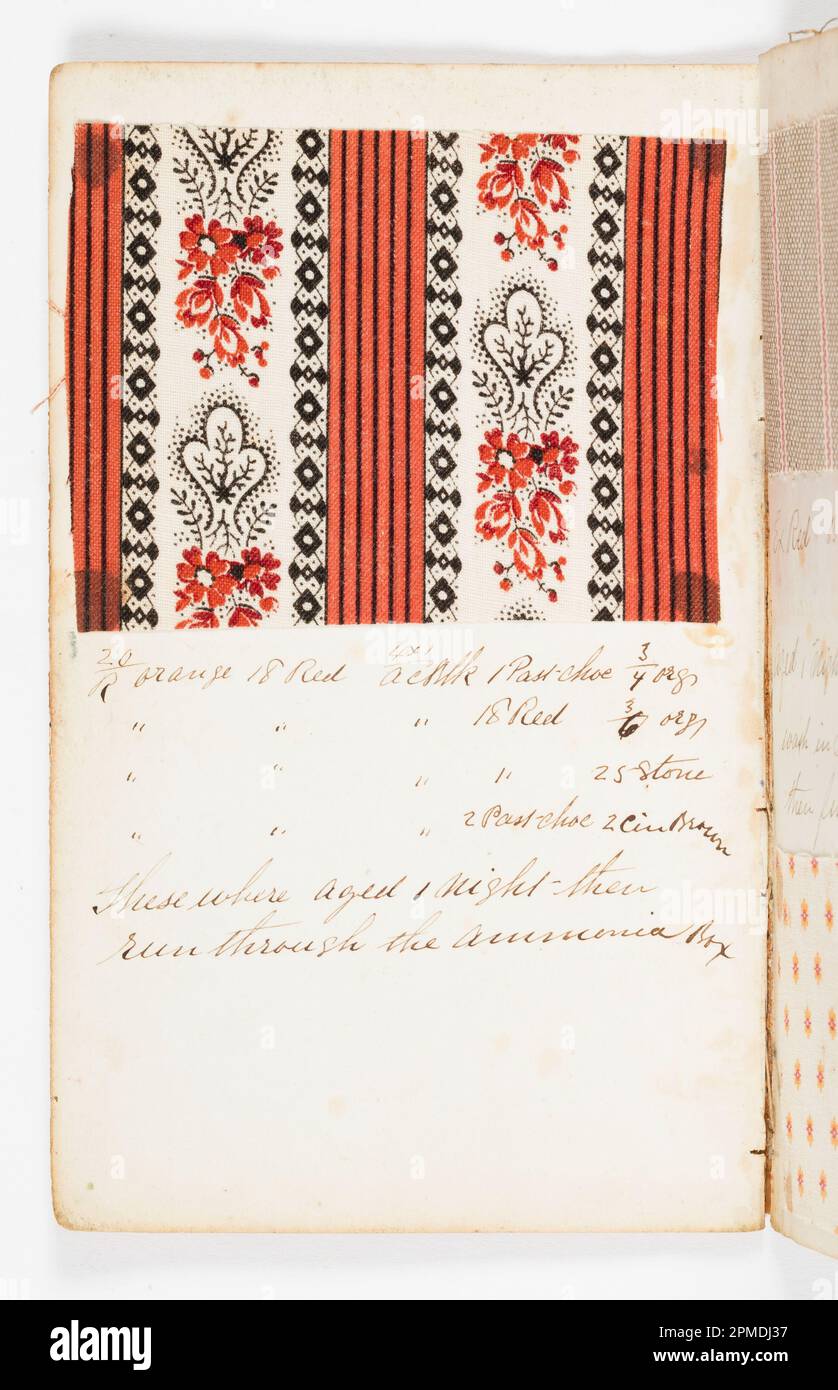 20/R orange 18 Red ac Blk 1 Past-choc 3/4 org
" " " 18 Red 3/6 org
" " " " 25-Stone
" " " 2 Past-choc 2 Cin Brown
These where aged 1 night-then
run through the ammonia Box
Red
then
alamy
Image ID: 2PMDJ37
www.alamy.com